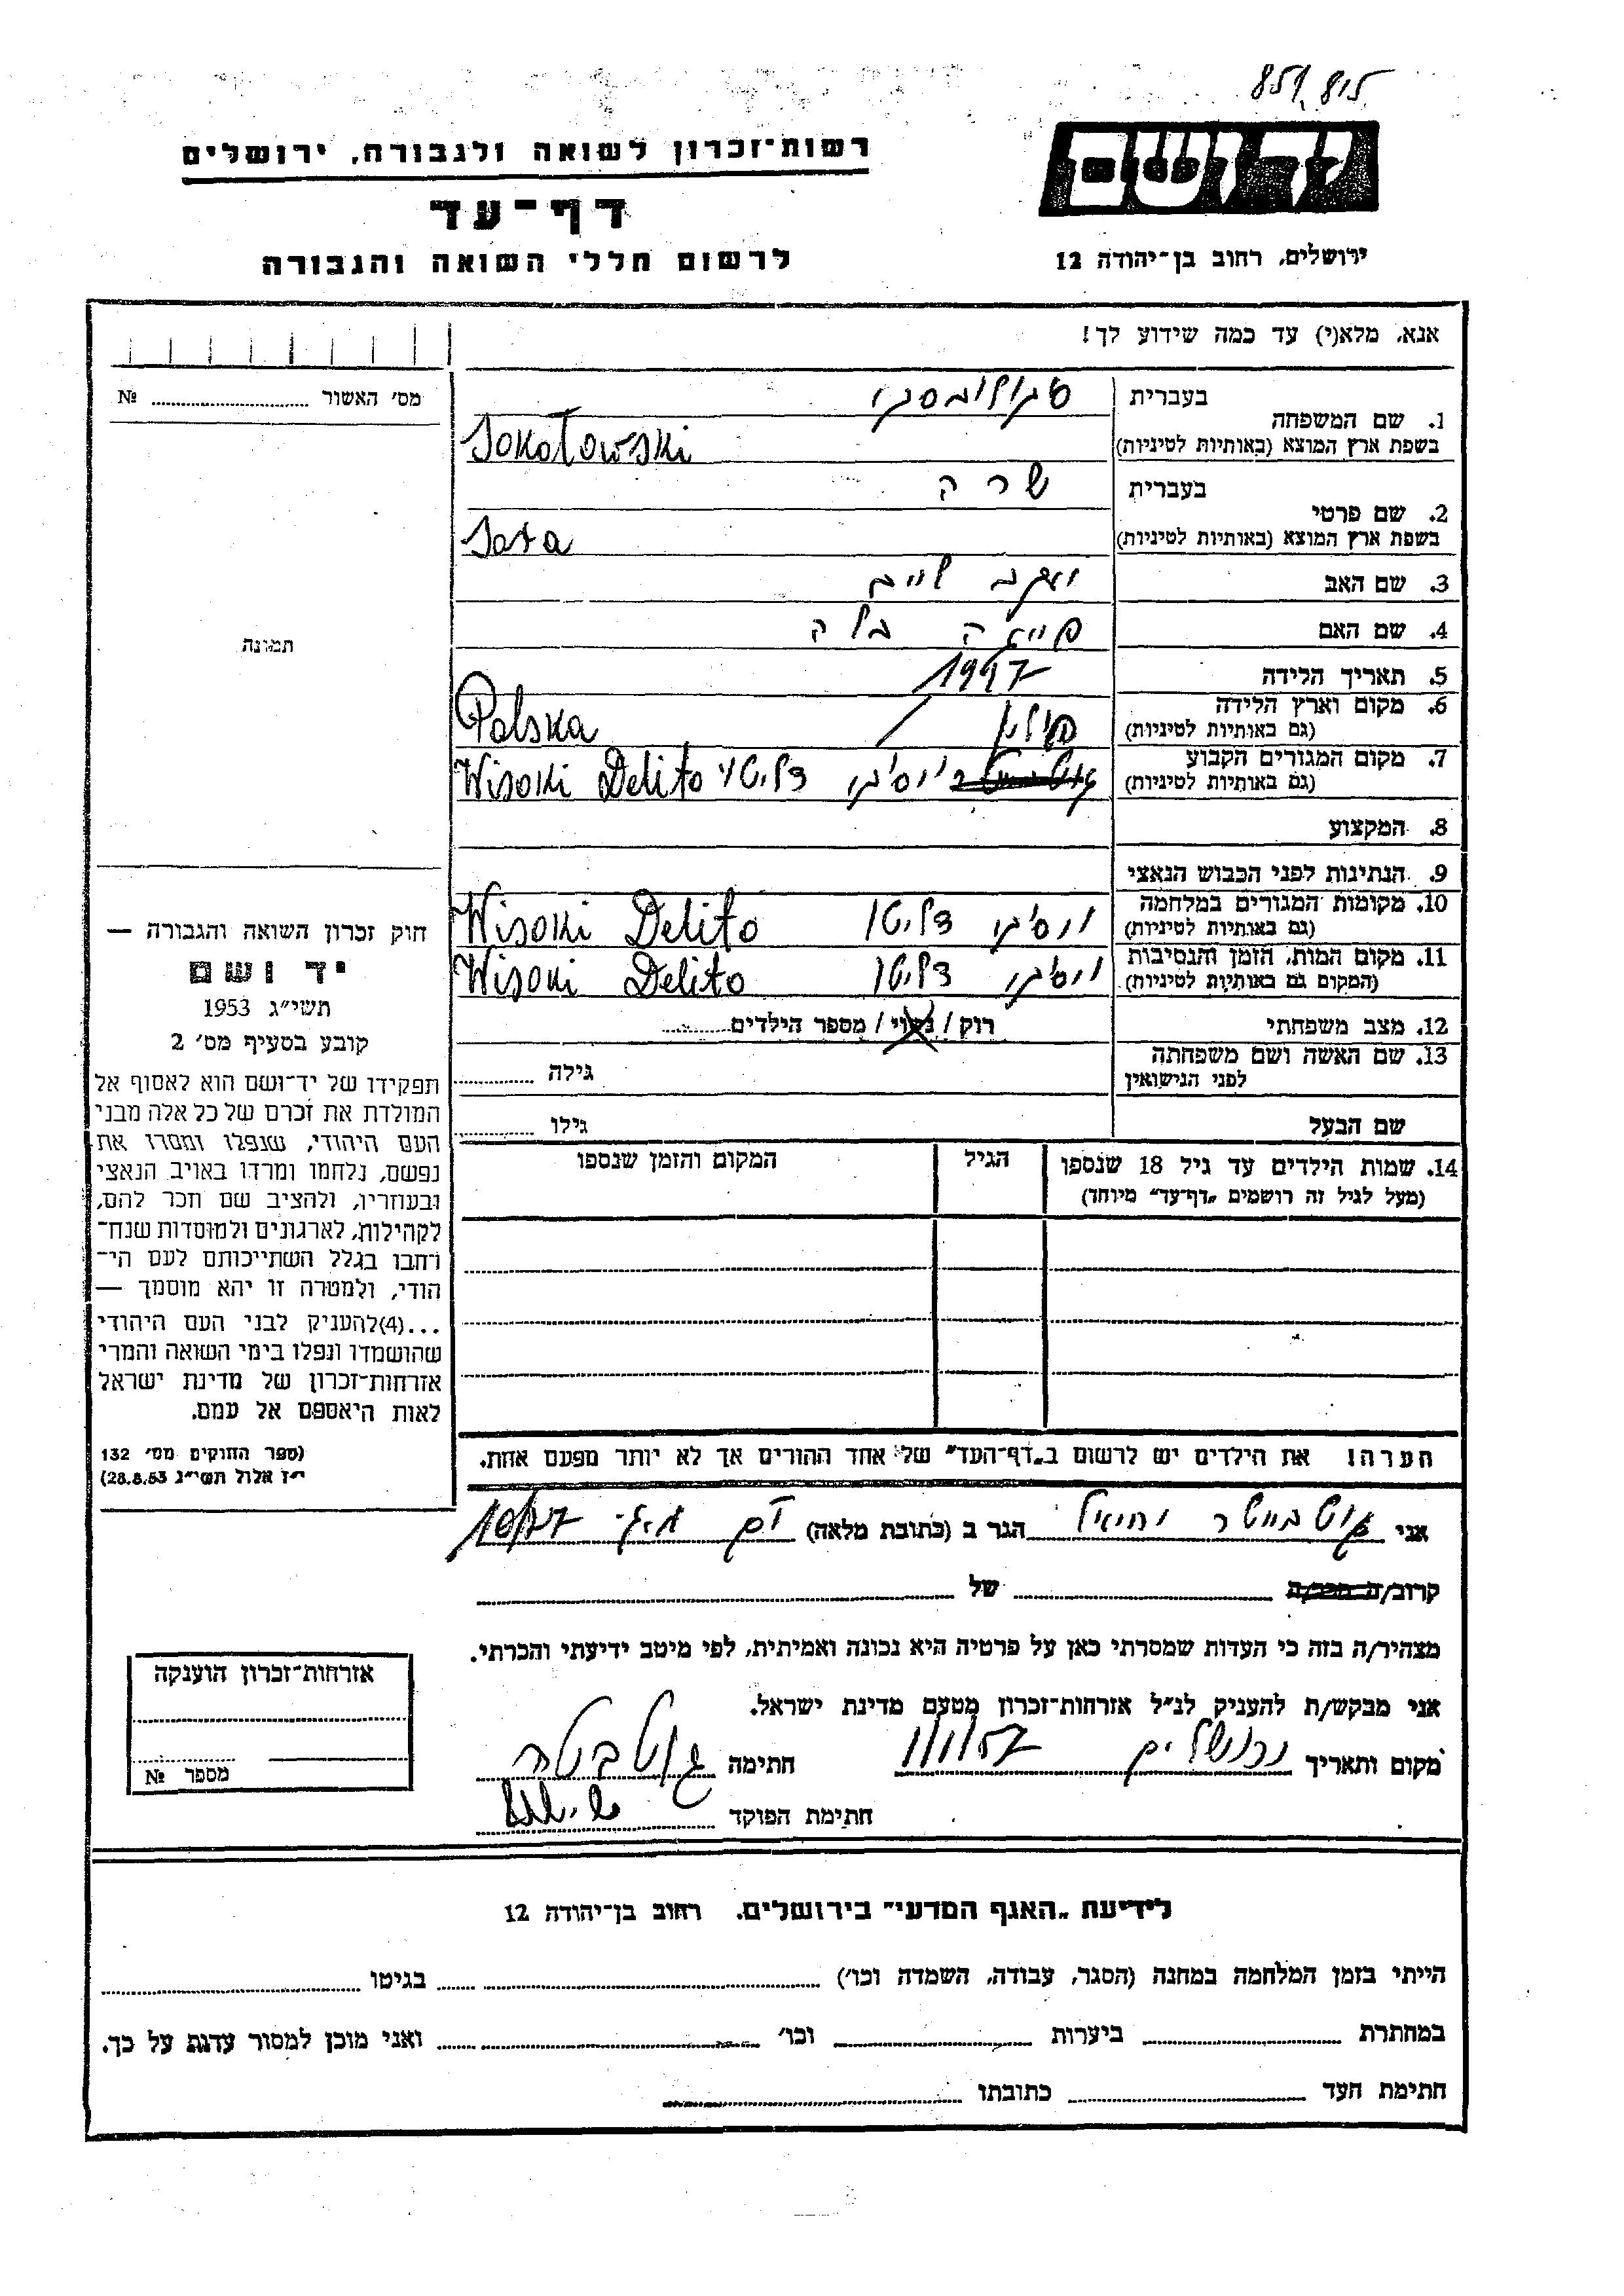 859, 815
יד ושם
רשות־זכרון לשואה ולגבורה, ירושלים
דף־עד
לרשום חללי השואה והגבורה
ירושלים, רחוב בן־יהודה 12
אנא, מלא(י) עד כמה שידוע לך!
מס׳ האשור № 
1. שם המשפחה בעברית סוקולובסקי
בשפת ארץ המוצא (באותיות לטיניות) Sokołowski
2. שם פרטי בעברית שרה
בשפת ארץ המוצא (באותיות לטיניות) Sara
3. שם האב יעקב חיים
4. שם האם פייגה בלה
5. תאריך הלידה
6. מקום וארץ הלידה (גם באותיות לטיניות) פולין / Polska
7. מקום המגורים הקבוע (גם באותיות לטיניות) Wisoki Delito
8. המקצוע
9. הנתינות לפני הכבוש הנאצי
10. מקומות המגורים במלחמה (גם באותיות לטיניות) ויסוקי דליטו Wisoki Delito
11. מקום המות, הזמן והנסיבות (המקום גם באותיות לטיניות) ויסוקי דליטו Wisoki Delito
12. מצב משפחתי רוק / נשוי / מספר הילדים
13. שם האשה ושם משפחתה לפני הנישואין גילה
שם הבעל גילו
14. שמות הילדים עד גיל 18 שנספו הגיל המקום והזמן שנספו
(מעל לגיל זה רושמים „דף־עד״ מיוחד)
תמונה
חוק זכרון השואה והגבורה —
יד ושם
תשי״ג 1953
קובע בסעיף מס׳ 2
תפקידו של יד־ושם הוא לאסוף אל
המולדת את זכרם של כל אלה מבני
העם היהודי, שנפלו ומסרו את
נפשם, נלחמו ומרדו באויב הנאצי
ובעוזריו, ולהציב שם וזכר להם,
לקהילות, לארגונים ולמוסדות שנח־
רבו בגלל השתייכותם לעם הי־
הודי, ולמטרה זו יהא מוסמך —
...(4)להעניק לבני העם היהודי
שהושמדו ונפלו בימי השואה והמרי
אזרחות־זכרון של מדינת ישראל
לאות היאספם אל עמם.
(ספר החוקים מס׳ 132
י״ז אלול תשי״ג 28.8.53)
הערה! את הילדים יש לרשום ב„דף־העד״ של אחד ההורים אך לא יותר מפעם אחת.
אני הגר ב (כתובת מלאה)
קרוב/ה מכר/ה של
מצהיר/ה בזה כי העדות שמסרתי כאן על פרטיה היא נכונה ואמיתית, לפי מיטב ידיעתי והכרתי.
אני מבקש/ת להעניק לנ״ל אזרחות־זכרון מטעם מדינת ישראל.
מקום ותאריך ירושלים 1/1/57 חתימה
חתימת הפוקד
אזרחות־זכרון הוענקה
מספר №
לידיעת „האגף המדעי״ בירושלים, רחוב בן־יהודה 12
הייתי בזמן המלחמה במחנה (הסגר, עבודה, השמדה וכו׳) בגיטו
במחתרת ביערות וכו׳ ואני מוכן למסור עדות על כך.
חתימת העד כתובתו